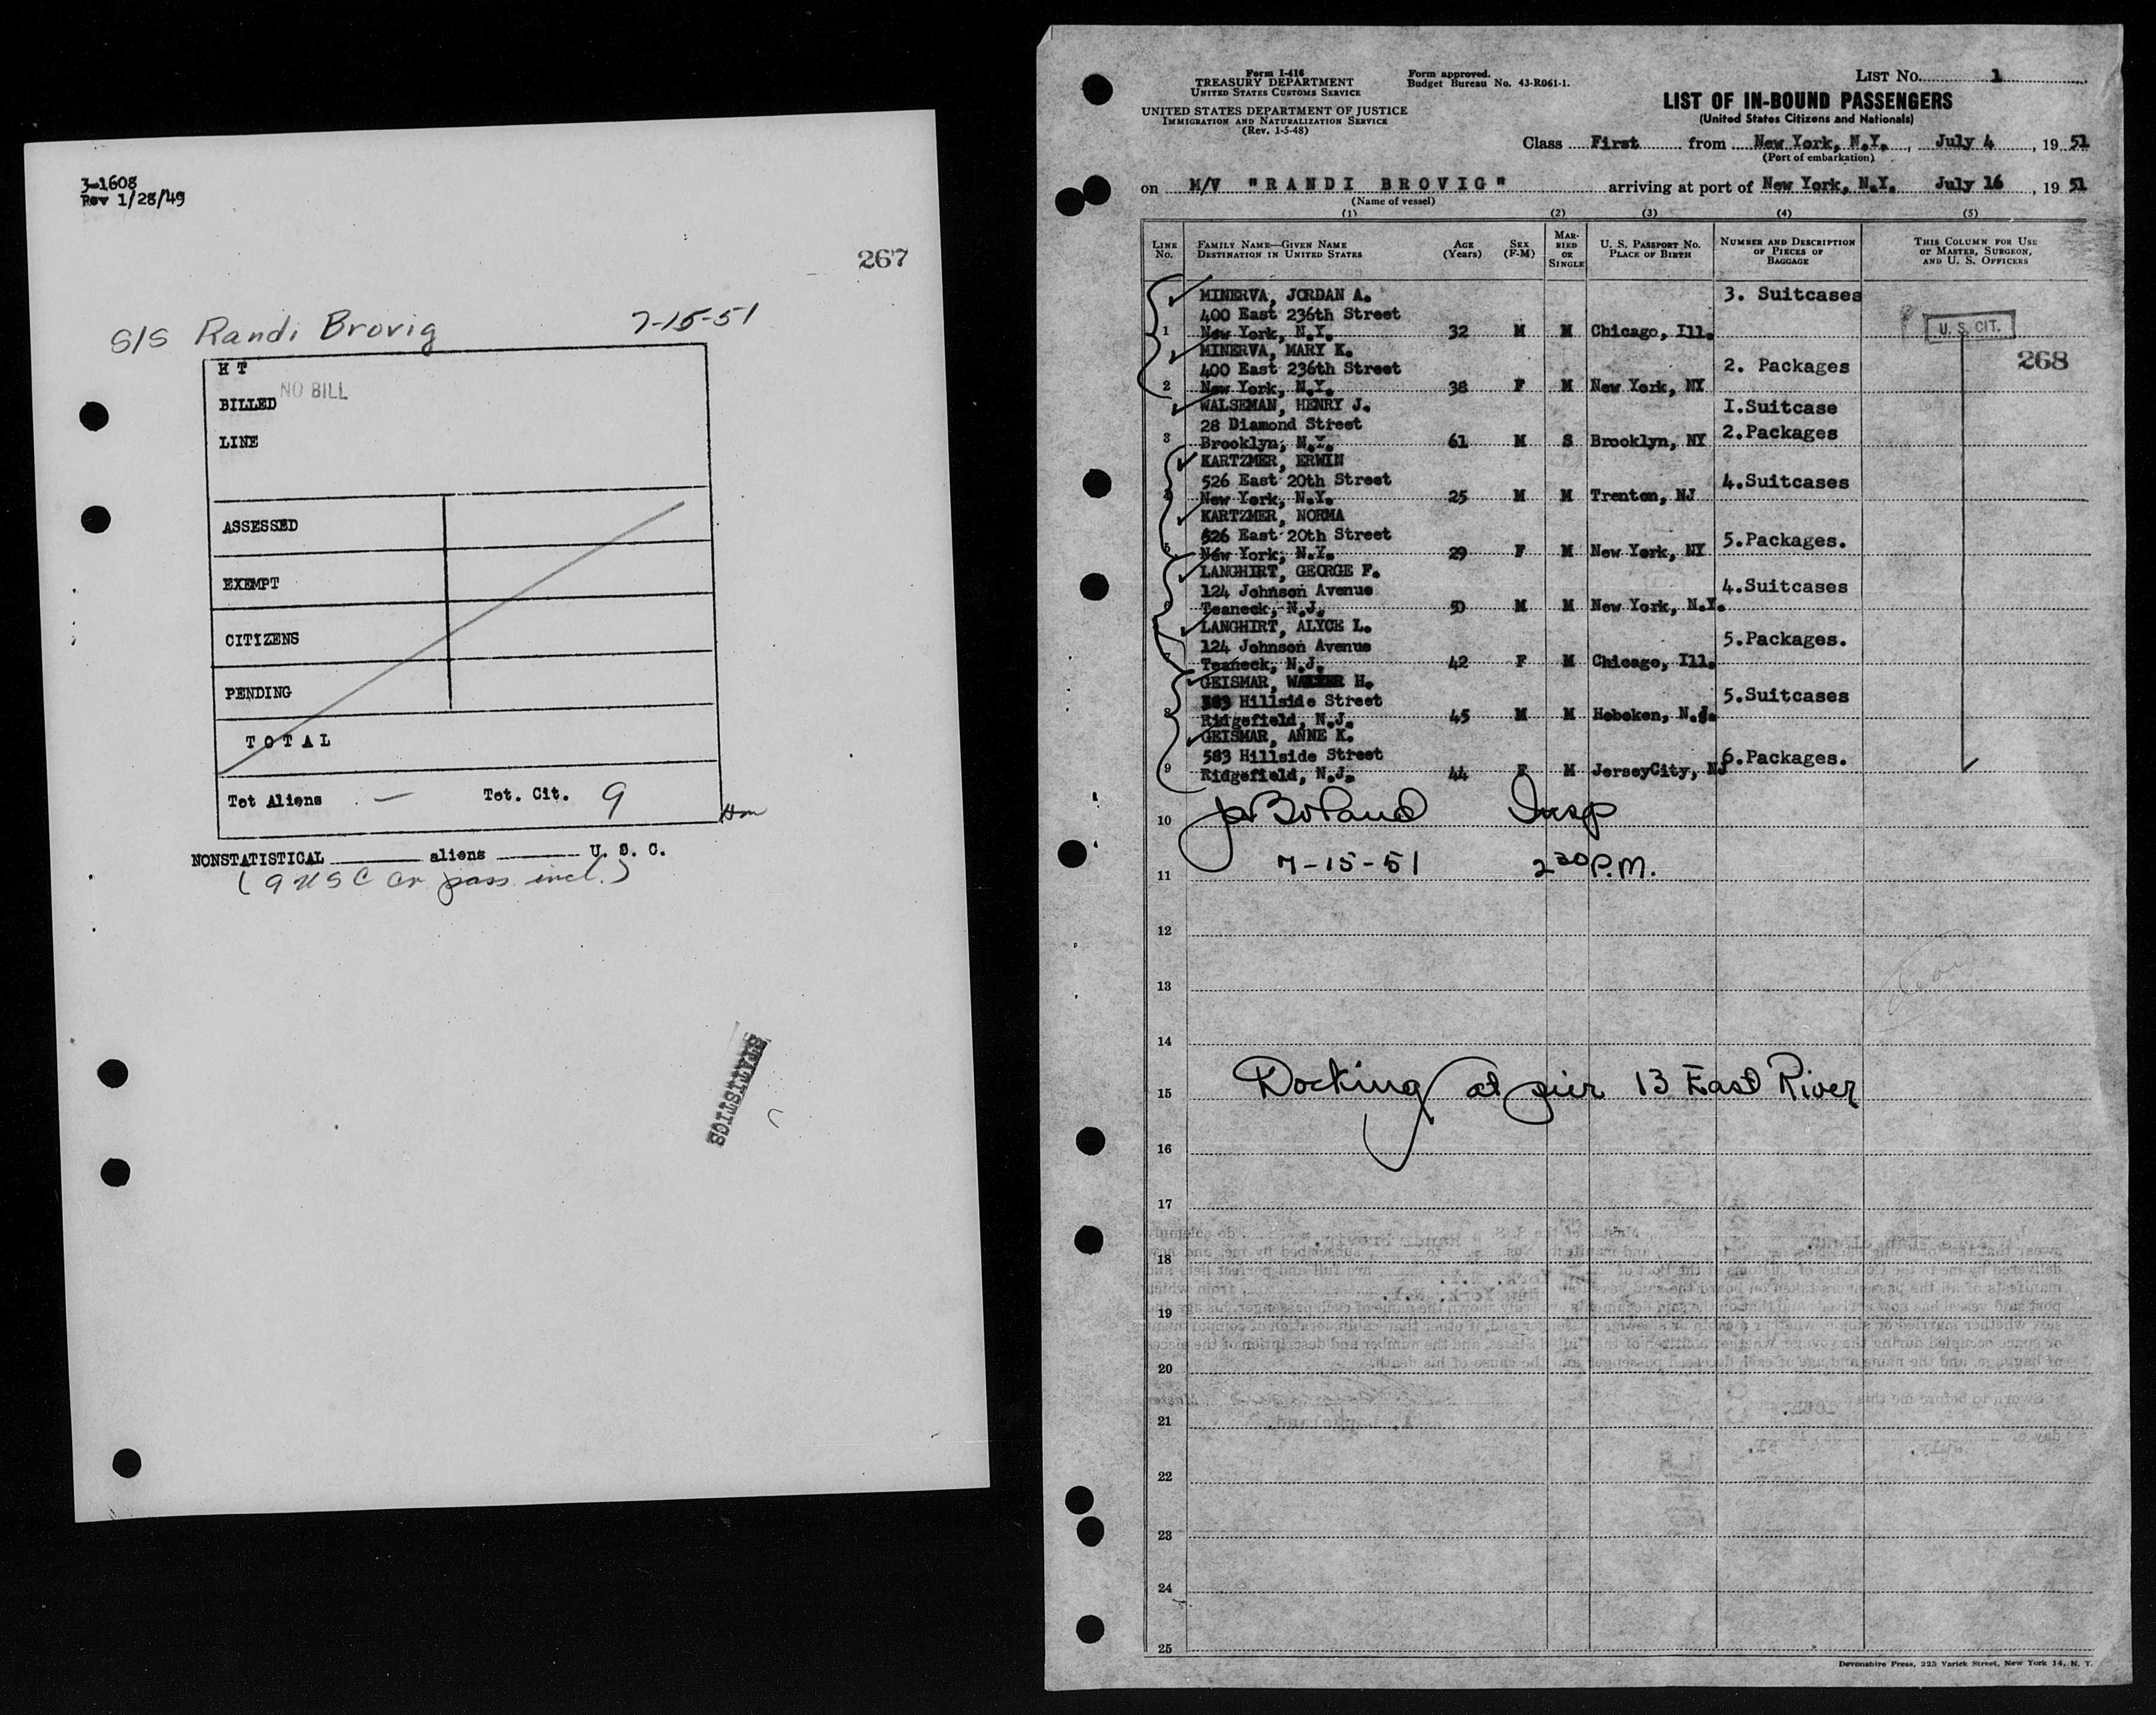 3-1608
Rev 1/28/49
267
S/S Randi Brovig 7-15-51
H T
BILLED NO BILL
LINE
ASSESSED
EXEMPT
CITIZENS
PENDING
T O T A L
Tot Aliens — Tot. Cit. 9
NONSTATISTICAL aliens U. S. C.
(9 USC cr pass incl.)
STATISTICS
Form I-416
TREASURY DEPARTMENT
UNITED STATES CUSTOMS SERVICE
UNITED STATES DEPARTMENT OF JUSTICE
IMMIGRATION AND NATURALIZATION SERVICE
(Rev. 1-5-48)
Form approved.
Budget Bureau No. 43-R061-1.
LIST No. 1
LIST OF IN-BOUND PASSENGERS
(United States Citizens and Nationals)
Class First from New York, N.Y., July 4, 19 51
(Port of embarkation)
on M/V "RANDI BROVIG" arriving at port of New York, N.Y. July 16, 19 51
(Name of vessel)
(1) (2) (3) (4) (5)
LINE No. FAMILY NAME—GIVEN NAME DESTINATION IN UNITED STATES AGE (Years) SEX (F-M) MARRIED OR SINGLE U. S. PASSPORT No. PLACE OF BIRTH NUMBER AND DESCRIPTION OF PIECES OF BAGGAGE THIS COLUMN FOR USE OF MASTER, SURGEON, AND U. S. OFFICERS
MINERVA, JORDAN A. 3. Suitcases
400 East 236th Street
1 New York, N.Y. 32 M M Chicago, Ill. U. S. CIT.
MINERVA, MARY K. 268
400 East 236th Street 2. Packages
2 New York, N.Y. 38 F M New York, NY
WALSEMAN, HENRY J. 1.Suitcase
28 Diamond Street
3 Brooklyn, N.Y. 61 M S Brooklyn, NY 2.Packages
KARTZMER, ERWIN
526 East 20th Street 4.Suitcases
4 New York, N.Y. 25 M M Trenton, NJ
KARTZMER, NORMA
526 East 20th Street 5.Packages.
5 New York, N.Y. 29 F M New York, NY
LANGHIRT, GEORGE F.
124 Johnson Avenue 4.Suitcases
6 Teaneck, N.J. 50 M M New York, N.Y.
LANGHIRT, ALYCE L.
124 Johnson Avenue 5.Packages.
7 Teaneck, N.J. 42 F M Chicago, Ill.
GEISMAR, WALTER H.
583 Hillside Street 5.Suitcases
8 Ridgefield, N.J. 45 M M Hoboken, N.J.
GEISMAR, ANNE K.
583 Hillside Street 6.Packages.
9 Ridgefield, N.J. 44 F M JerseyCity, NJ
10 Boland Insp
11 7-15-51 2 30 P.M.
12
13
14
15 Docking at pier 13 East River
16
17
18
19
20
21
22
23
24
25
Devonshire Press, 225 Varick Street, New York 14, N. Y.